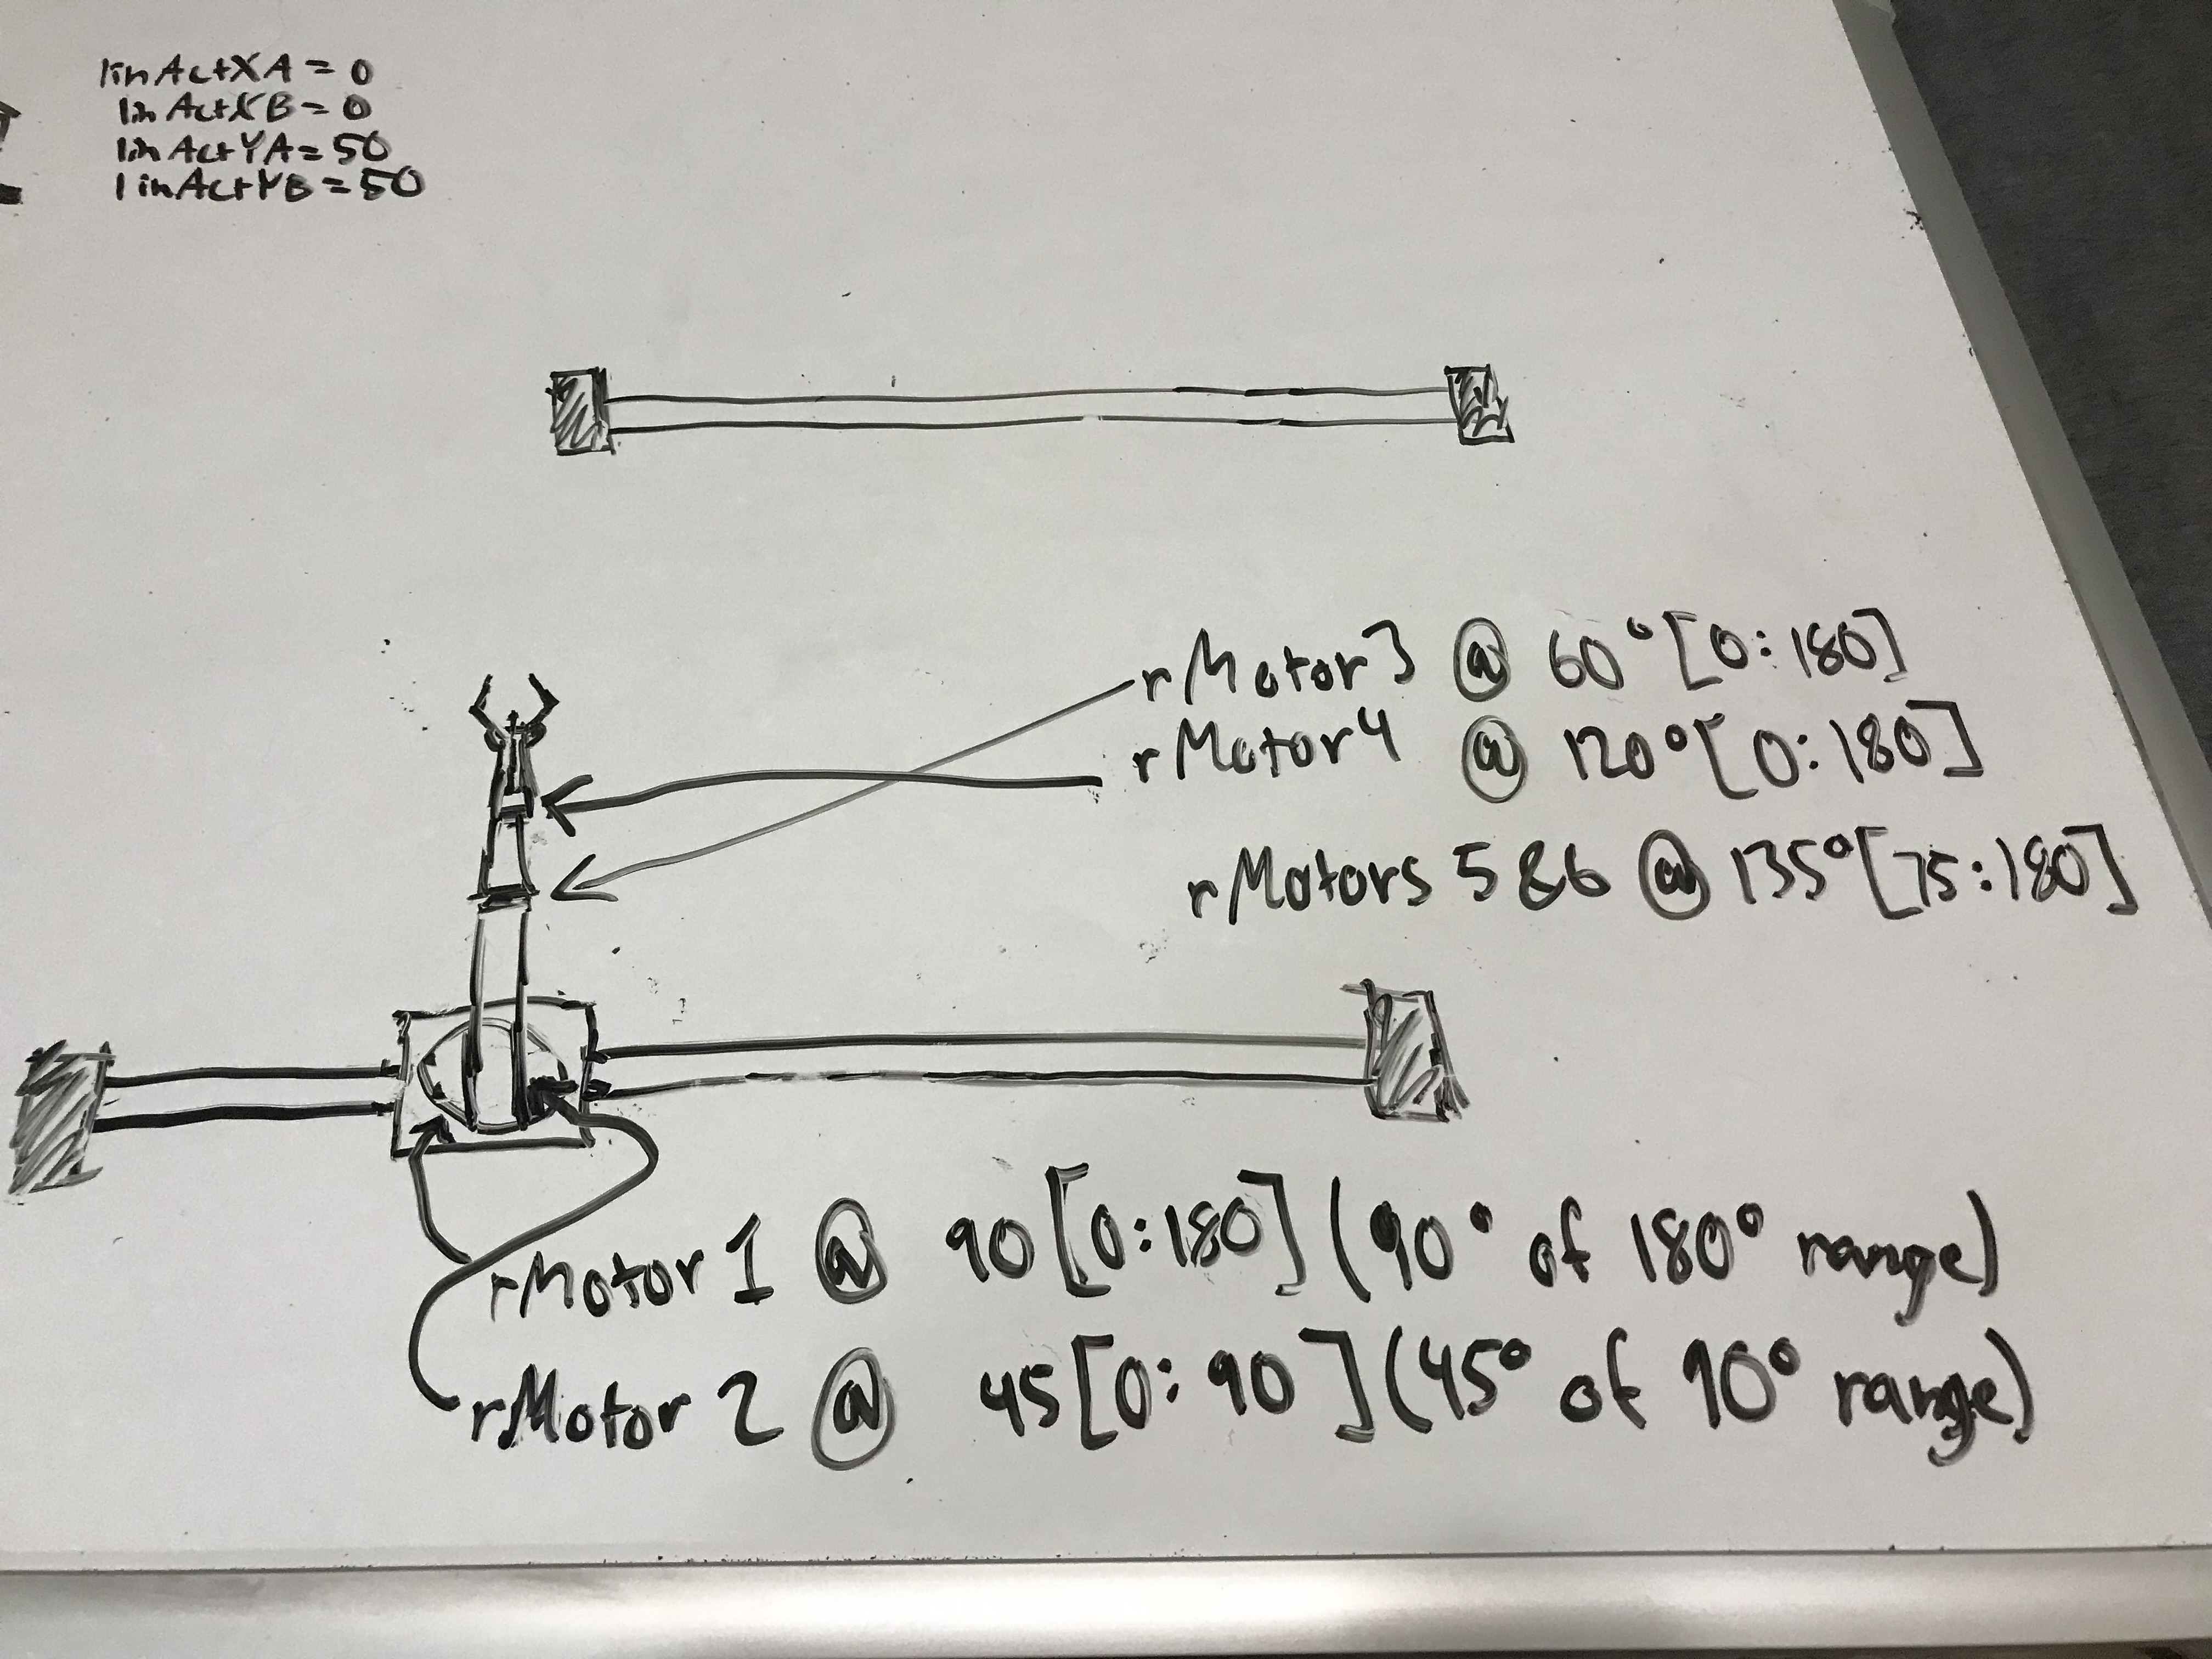 linActXA = 0
linActXB = 0
linActYA = 50
linActYB = 50
rMotor3 @ 60°[0:180]
rMotor4 @ 120°[0:180]
rMotors 5&6 @ 135°[75:180]
rMotor 1 @ 90[0:180](90° of 180° range)
rMotor 2 @ 45[0:90](45° of 90° range)